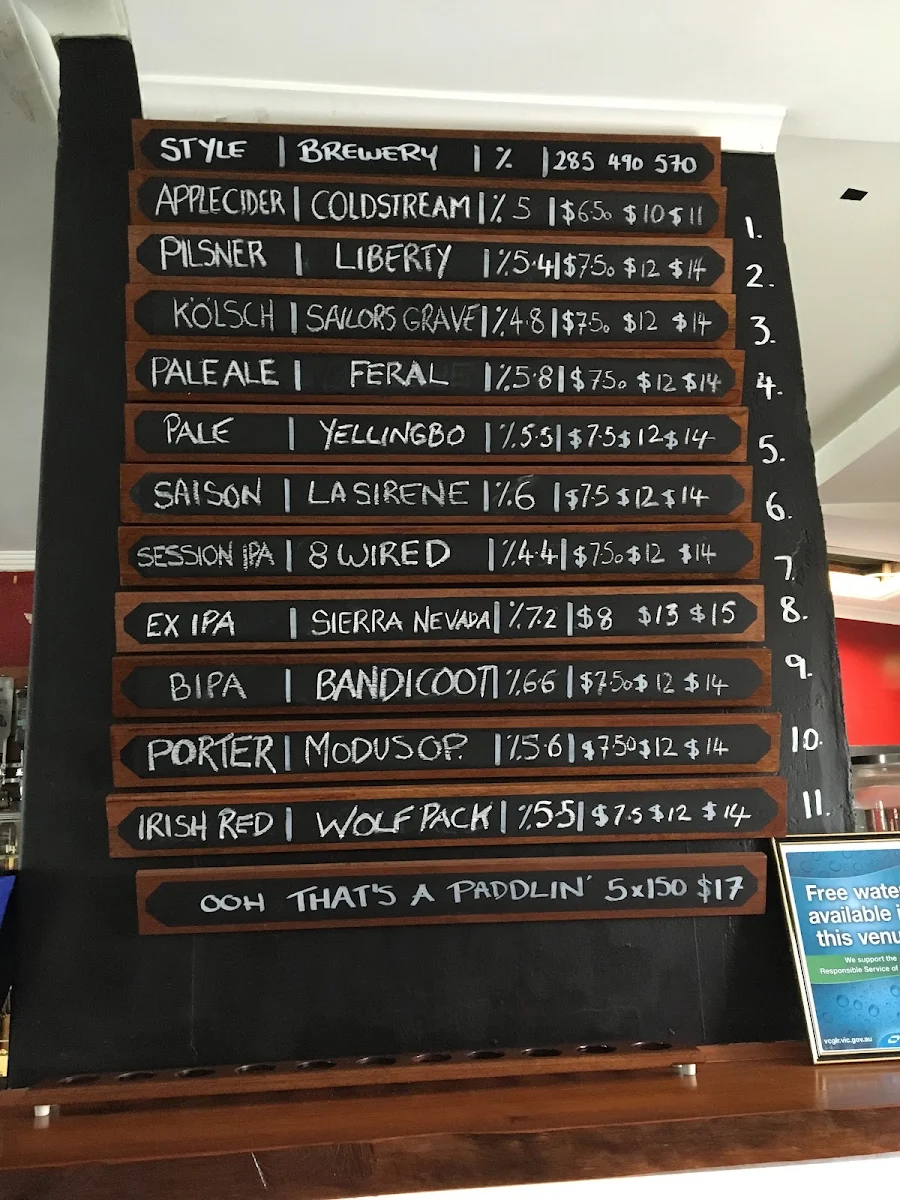 STYLE | BREWERY | % | 285 490 570
APPLECIDER | COLDSTREAM | % 5 | $6.50 $10 $11
1.
PILSNER | LIBERTY | %5.4 | $7.50 $12 $14
2.
KÖLSCH | SAILORS GRAVE | %4.8 | $7.50 $12 $14
3.
PALE ALE | FERAL | %5.8 | $7.50 $12 $14
4.
PALE | YELLINGBO | %5.5 | $7.5 $12 $14
5.
SAISON | LA SIRENE | %6 | $7.5 $12 $14
6.
SESSION IPA | 8 WIRED | %4.4 | $7.50 $12 $14
7.
EX IPA | SIERRA NEVADA | %7.2 | $8 $13 $15
8.
BIPA | BANDICOOT | %6.6 | $7.50 $12 $14
9.
PORTER | MODUS OP. | %5.6 | $7.50 $12 $14
10.
IRISH RED | WOLF PACK | %5.5 | $7.5 $12 $14
11.
OOH THAT'S A PADDLIN' 5x150 $17
Free water
available i
this venu
We support the
Responsible Service of
vcglr.vic.gov.au